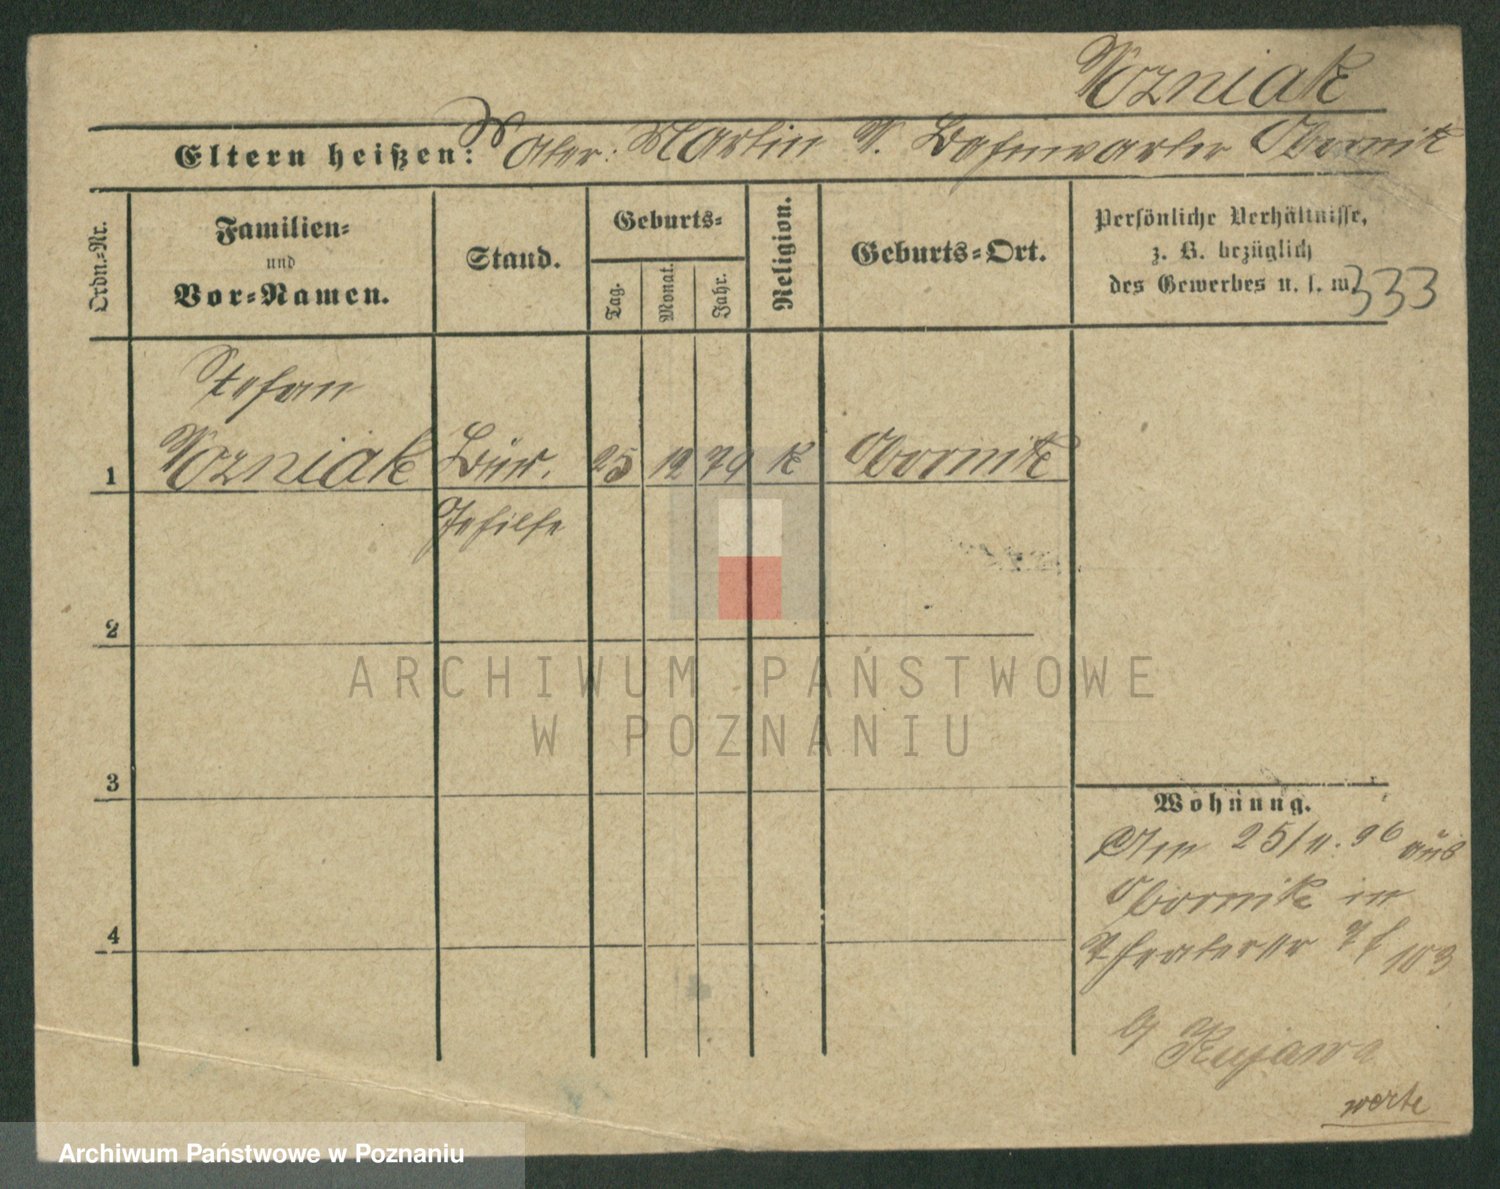 Wozniak
Eltern heißen: Vater: Martin W. Bahnwärter Obornik
Ordn.-Nr.
Familien-
und
Vor-Namen.
Stand.
Geburts-
Tag.
Monat.
Jahr.
Religion.
Geburts-Ort.
Persönliche Verhältnisse,
z. B. bezüglich
des Gewerbes u. s. w.
333
Stefan
1 Wozniak Bür. 25 12 79 K Obornik
Gehilfe
2
3
4
ARCHIWUM PAŃSTWOWE
W POZNANIU
Wohnung.
25/11. 96 aus
Obornik in
Theaterstr 103
Kujawa
Archiwum Państwowe w Poznaniu